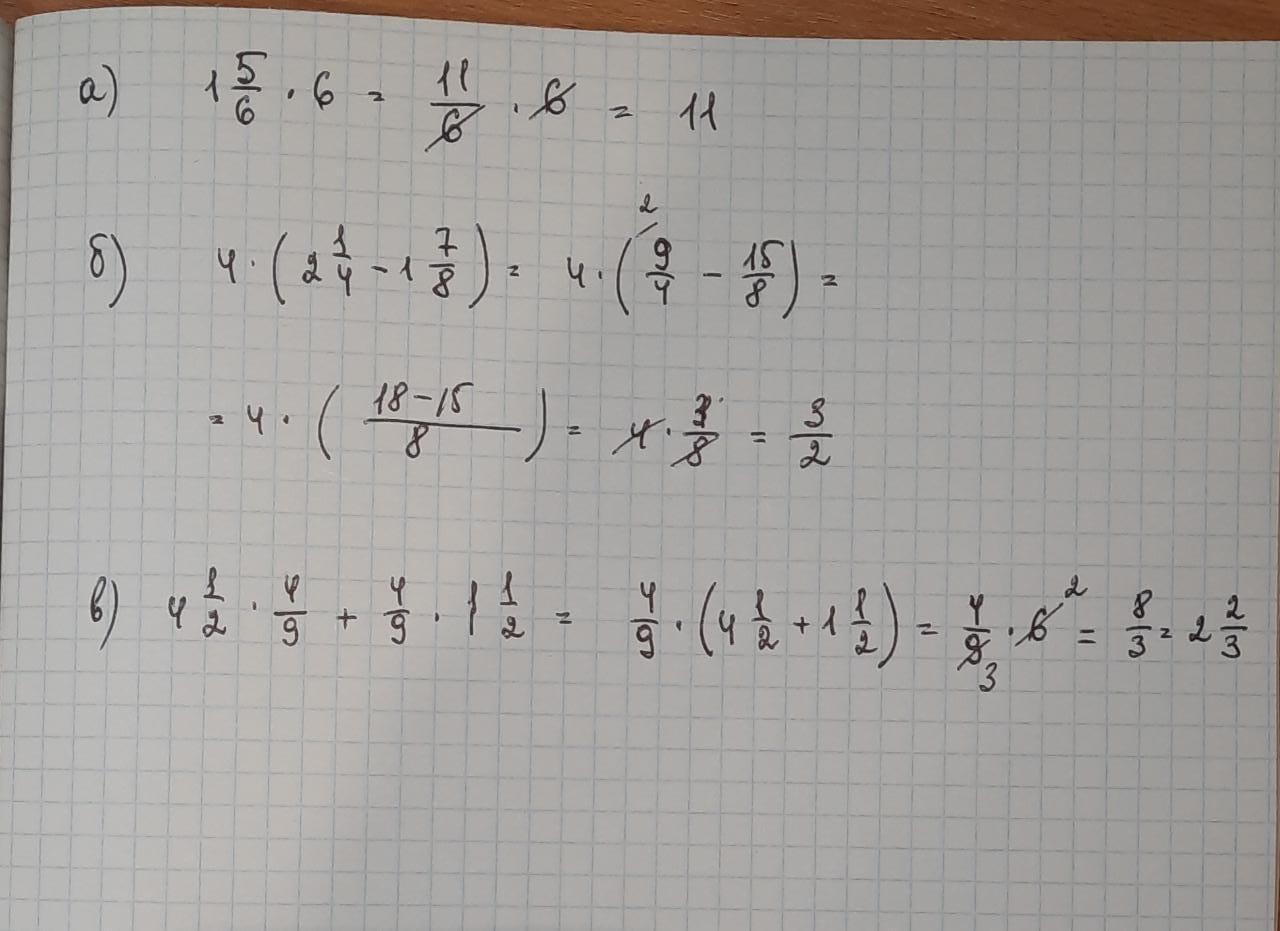 а) 1 5/6 · 6 = 11/6 · 6 = 11
б) 4 · (2 1/4 - 1 7/8) = 4 · (9/4 ² - 15/8) =
= 4 · ((18 - 15)/8) = 4 · 3/8 = 3/2
в) 4 1/2 · 4/9 + 4/9 · 1 1/2 = 4/9 · (4 1/2 + 1 1/2) = 4/9 ₃ · 6 ² = 8/3 = 2 2/3